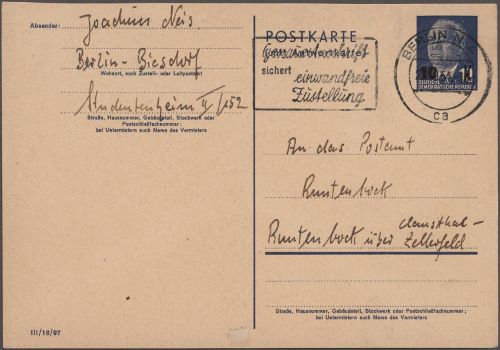 Absender: Joachim Neis
Berlin-Biesdorf
Wohnort, auch Zustell- oder Leitpostamt
Studentenheim II/152
Straße, Hausnummer, Gebäudeteil, Stockwerk oder
Postschließfachnummer;
bei Untermietern auch Name des Vermieters
III/18/97
POSTKARTE
mit Antwortkarte
sichert
einwandfreie
Zustellung
BERLIN N
10
DEUTSCHE
DEMOKRATISCHE REPUBLIK
ca
An das Postamt
Buntenbock
Buntenbock über Clausthal-
Zellerfeld
Straße, Hausnummer, Gebäudeteil, Stockwerk oder Postschließfachnummer;
bei Untermietern auch Name des Vermieters